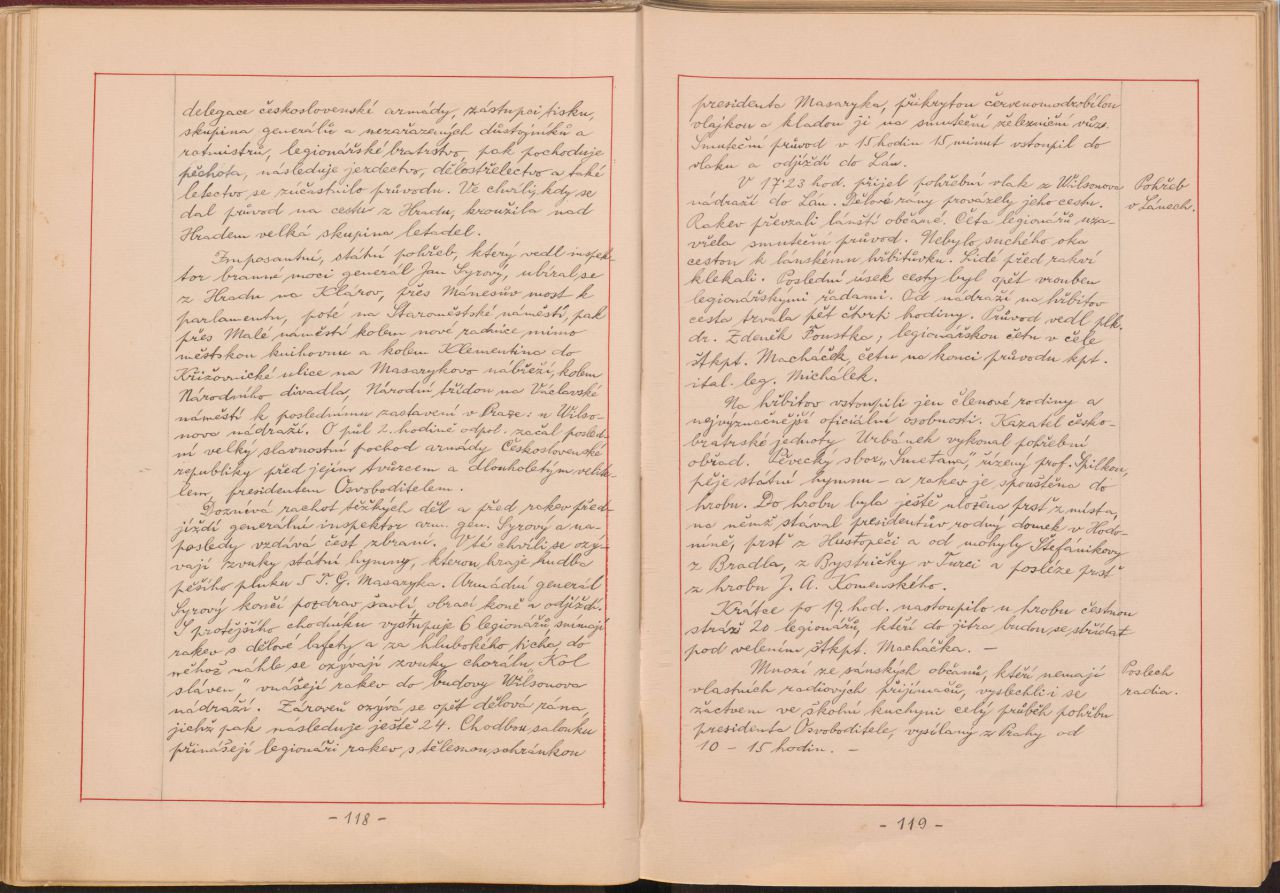 delegace československé armády, zástupci tisku,
skupina generálů a nezařazených důstojníků a
rotmistrů, legionářské bratrstvo, pak pochoduje
pěchota, následuje jezdectvo, dělostřelectvo a také
letectvo se zúčastnilo průvodu. Ve chvíli, kdy se
dal průvod na cestu z Hradu, kroužila nad
Hradem velká skupina letadel.
Imposantní, státní pohřeb, který vedl inspek-
tor branné moci generál Jan Syrový, ubíral se
z Hradu na Klárov, přes Mánesův most k
parlamentu, poté na Staroměstské náměstí, pak
přes Malé náměstí kolem nové radnice mimo
městskou knihovnu a kolem Klementina do
Křižovnické ulice na Masarykovo nábřeží, kolem
Národního divadla, Národní třídou na Václavské
náměstí k poslednímu zastavení v Praze: u Wilso-
nova nádraží. O půl 2. hodině odpol. začal posled-
ní velký slavnostní pochod armády Československé
republiky před jejím tvůrcem a dlouholetým velite-
lem, presidentem Osvoboditelem.
Doznívá rachot těžkých děl a před rakev před-
jíždí generální inspektor arm. gen. Syrový a na-
posledy vzdává čest zbraní. V té chvíli se ozý-
vají zvuky státní hymny, kterou hraje hudba
pěšího pluku 5 T. G. Masaryka. Armádní generál
Syrový končí pozdrav šavlí, obrací koně a odjíždí.
S protějšího chodníku vystupuje 6 legionářů snímají
rakev s dělové lafety a za hlubokého ticha, do
něhož náhle se ozývají zvuky chorálu „Kol
sláven" vnášejí rakev do budovy Wilsonova
nádraží. Zároveň ozývá se opět dělová rána,
jichž pak následuje ještě 24. Chodbou salonku
přinášejí legionáři rakev s tělesnou schránkou
- 118 -
presidenta Masaryka, přikrytou červenomodrobílou
vlajkou a kladou ji na smuteční železniční vůz.
Smuteční průvod v 15 hodin 15 minut vstoupil do
vlaku a odjíždí do Lán.
V 17·23 hod. přijel pohřební vlak z Wilsonova
nádraží do Lán. Dělové rány provázely jeho cestu.
Rakev převzali lánští občané. Četa legionářů uza-
vřela smuteční průvod. Nebylo suchého oka
cestou k lánskému hřbitůvku. Lidé před rakví
klekali. Poslední úsek cesty byl opět vrouben
legionářskými řadami. Od nádraží na hřbitov
cesta trvala pět čtvrtí hodiny. Průvod vedl plk.
dr. Zdeněk Foustka; legionářskou četu v čele
škpt. Macháček, četu na konci průvodu kpt.
ital. leg. Michálek.
Na hřbitov vstoupili jen členové rodiny a
nejvýznačnější oficiální osobnosti. Kazatel česko-
bratrské jednoty Urbánek vykonal pohřební
obřad. Pěvecký sbor „Smetana", řízený prof. Spilkou,
pěje státní hymnu - a rakev je spouštěna do
hrobu. Do hrobu byla ještě uložena prsť z místa,
na němž stával presidentův rodný domek v Hodo-
níně, prsť z Hustopečí a od mohyly Štefánikovy
z Bradla, z Bystričky v Turci a posléze prsť
z hrobu J. A. Komenského.
Krátce po 19. hod. nastoupilo u hrobu čestnou
stráž 20 legionářů, kteří do jitra budou se střídat
pod velením škpt. Macháčka. -
Mnozí ze sánských občanů, kteří nemají
vlastních radiových přijímačů, vyslechli i se
žactvem ve školní kuchyni celý průběh pohřbu
presidenta Osvoboditele, vysílaný z Prahy od
10 - 15 hodin. -
Pohřeb
v Lánech.
Poslech
radia.
- 119 -